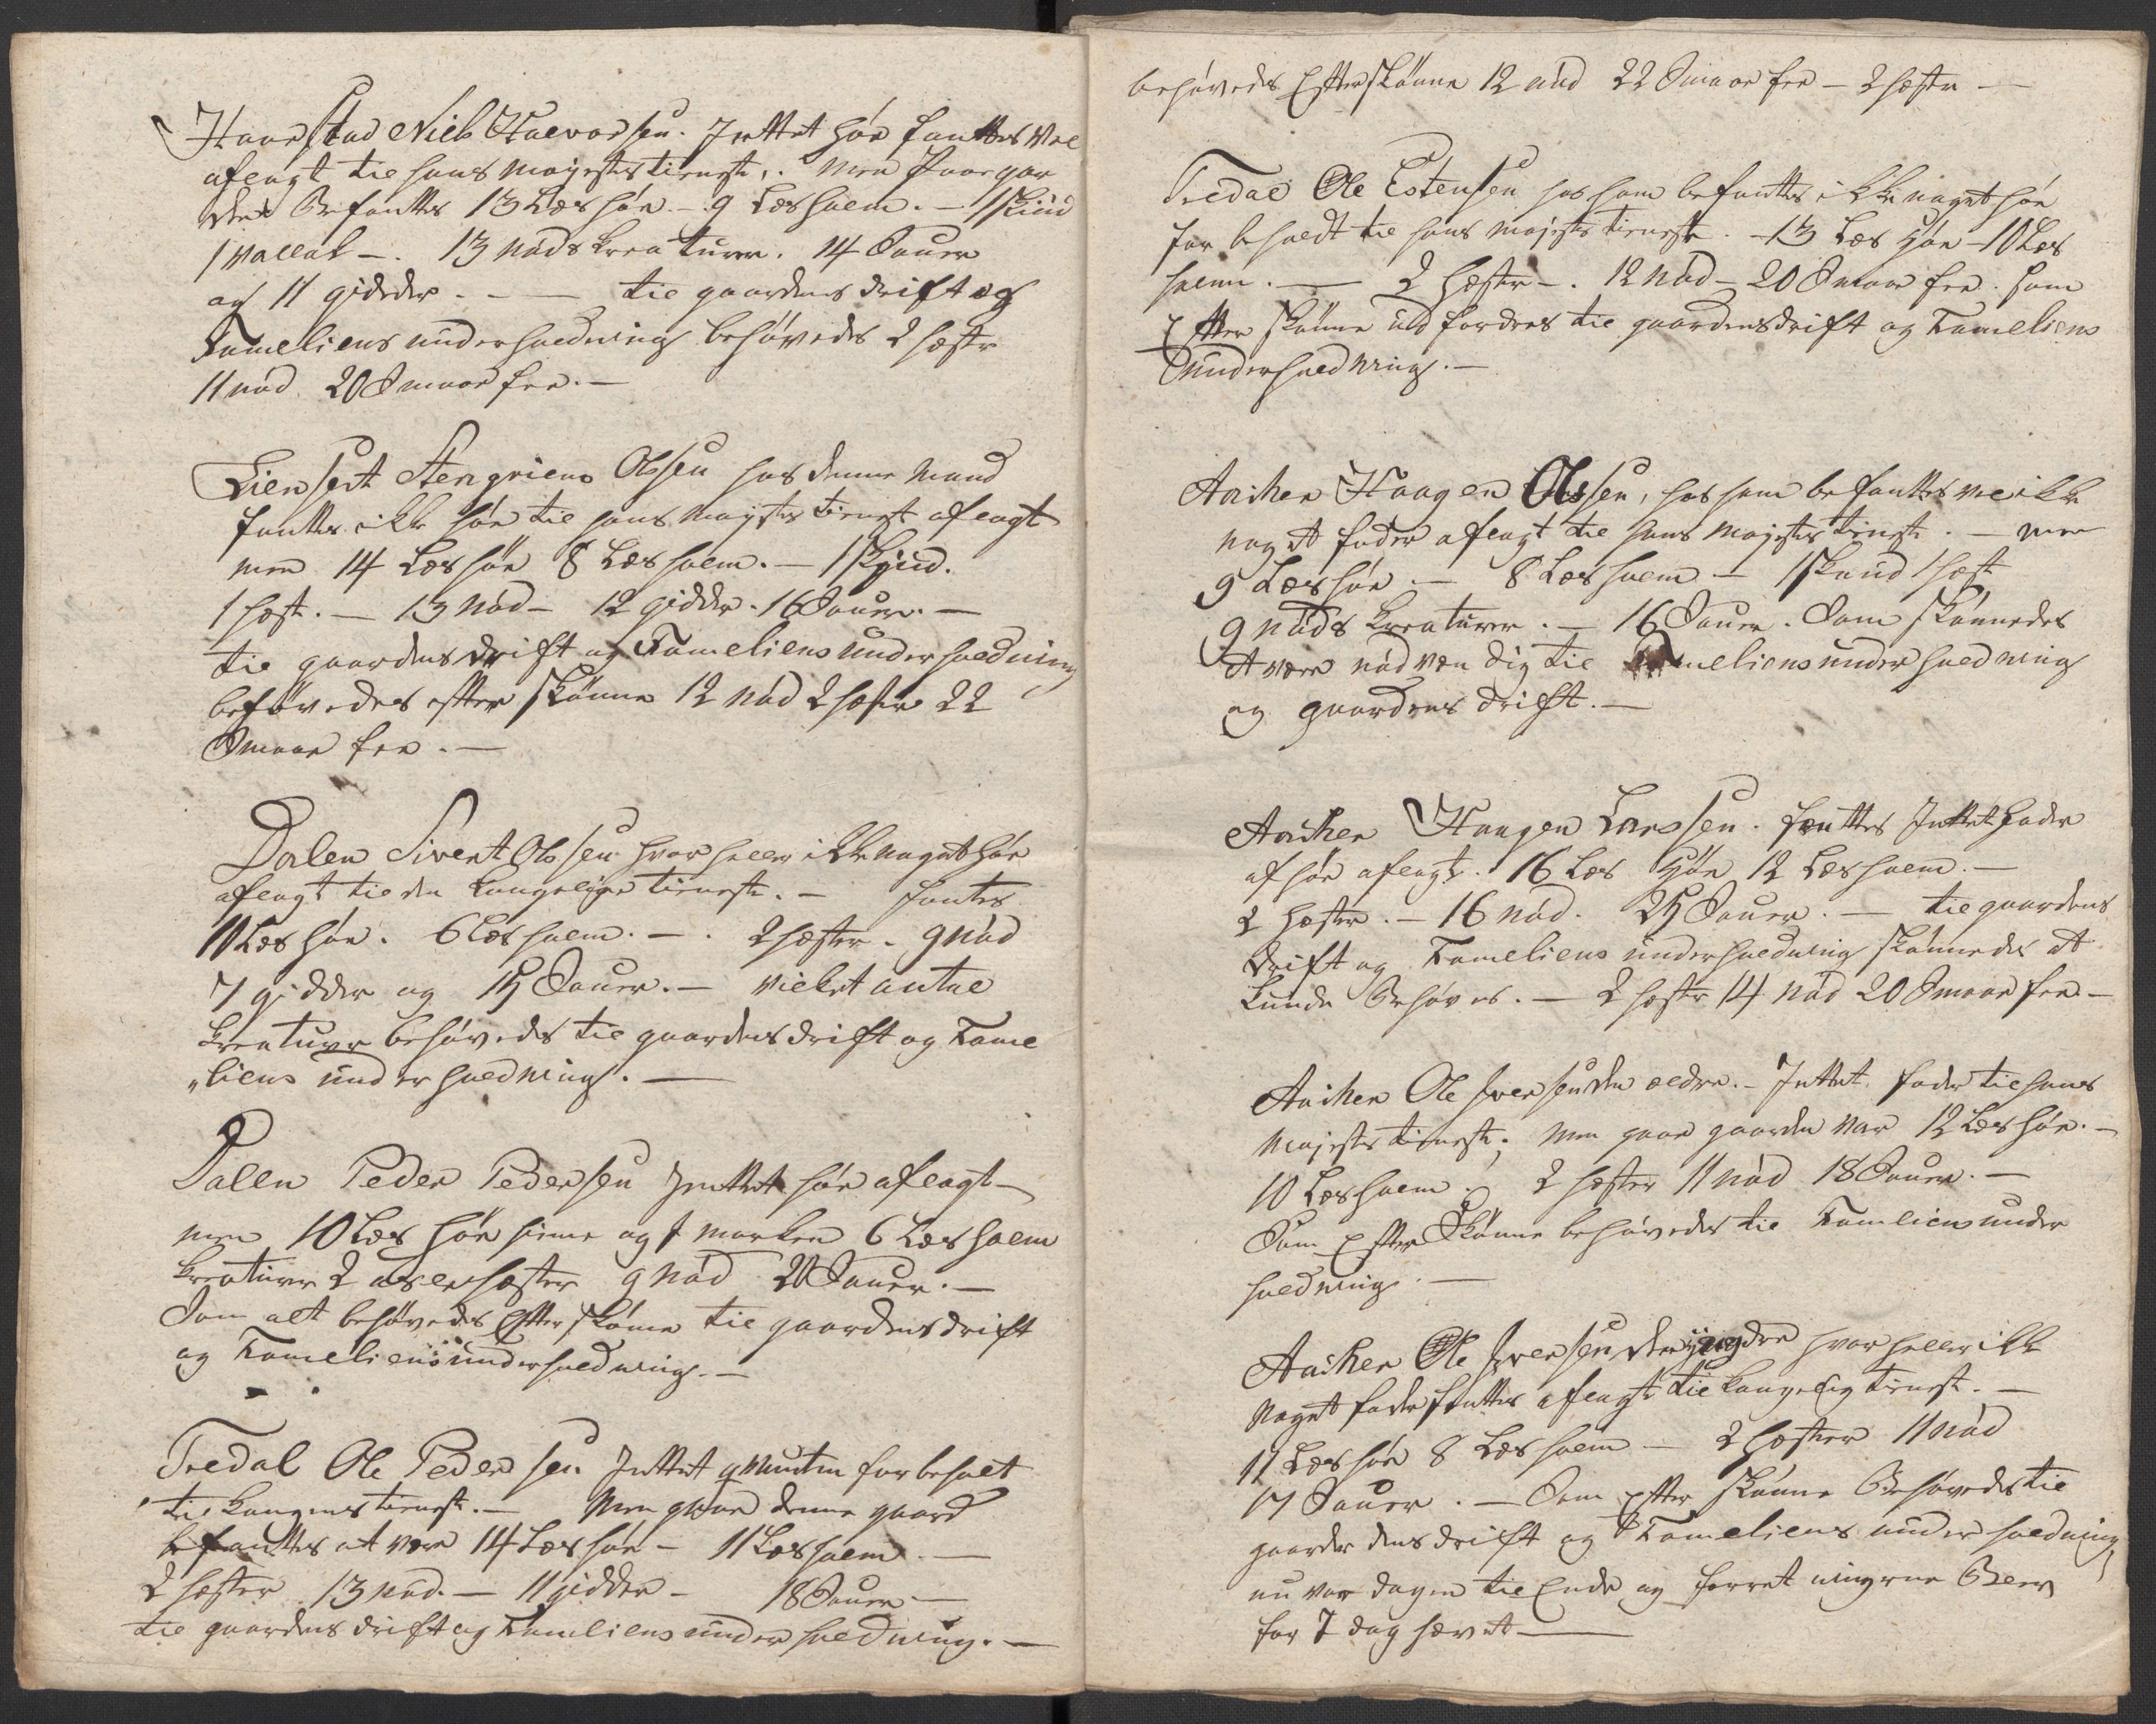 Haarstad Niels Halvorsen. Inttet høe fanttes vel
aflagt til hans majestes tieneste,. men Paa gar
den Befanttes 13 Læs høe. - 9 Læs halm. - 1 skiud
1 vallak -. 13 nøds kreaturer. 14 Sauer
og 11 gidder. - til gaardens drift og
Fameliens underholdning behøvedes 2 hæste
11 nød 20 Smaae fee. -
Lien Stengriens Olsen hos denne Mand
fanttes ikke høe til hans Maystes tienest aflagt
men 14 Læs høe 8 Læs halm. - 1 skyud.
1 hæst. - 13 Nød - 12 gidder. 16 Sauer. -
til gaardens drift og Fameliens underholdning
behøvedes efter skiønne 12 nød 2 hæste 22
Smaae fee. -
Dalen Sivert Olsen hvor heller ikke noget høe
aflagt til den kongelige tieneste. - fantes
11 Læs høe. 6 Læs halm. -. 2 hæster. 9 nød
7 gidder og 15 Sauer. - vilket antal
kreatuer behøvedes til gaardens drift og Fame
"liens underholdning. -
Dalen Peder Pedersen Inttet høe aflagt -
men 10 Læs høe hieme og i marken 6 Læs halm
kreaturer 2 hæster 9 nød 20 Sauer. -
Som alt behøvedes Efter skiønne til gaardens drift
og Fameliens underholdning. -
Tredal Ole Pedersen Inttet forbeholt
til kongens tieneste. - Men paae denne gaard
befanttes at være 14 Læs høe - 11 Læs halm. -
2 hæster 13 nød. - 11 gidder - 18 Sauer -
til gaardens drift og Fameliens underholdning. -
behøvedes Efter skønne 12 nød 22 Smaae fee - 2 hæste -
Tredal Ole Estensen hos ham befanttes ikke noget høe
forbeholdt til hans majestes tieneste. - 13 Læs høe - 10 Læs
halm. - 2 hæster -. 12 Nød - 20 Smaae fee. som
Efter skønne udfordres til gaardens drift og Fameliens
Underholdning. -
Aasken Haagen Olssen, hos ham befanttes vel ikke
noget foder aflagt til hans majestes tieneste. - men
9 Læs høe - 8 Læs halm - 1 skiud 1 hæst
9 nøds kreaturer. - 16 Sauer. Som skønnedes
at være nødvendig til Fameliens underholdning
og gaardens drift. -
Aasken Haagen Larssen. fanttes Inttet foder
af høe aflagt. 16 Læs høe 12 Læs halm. -
2 hæster. - 16 nød. 25 Sauer. - til gaardens
drift og Fameliens underholdning skønnedes at
kunde Behøves. - 2 hæste 14 nød 20 Smaae fee. -
Aasken Ole Iversen den ældre. - Inttet foder til hans
majestes tieneste; men paae gaarden var 12 Læs høe. -
10 Læs halm. 2 hæster 11 nød 18 Sauer. -
Som Efter Skiønne behøvedes til Famliens under
holdning. -
Aasken Ole Iversen den yngdre hvor heller ikke
Noget foder fanttes aflagt til kongelig tienest. -
11 Læs høe 8 Læs halm - 2 hæster 11 nød
17 Sauer. - Som Efter skønne Behøvedes til
gaardens drift og Fameliens underholdning,
nu var dagen til Ende og forretningerne Blev
for 7 dag hævet -